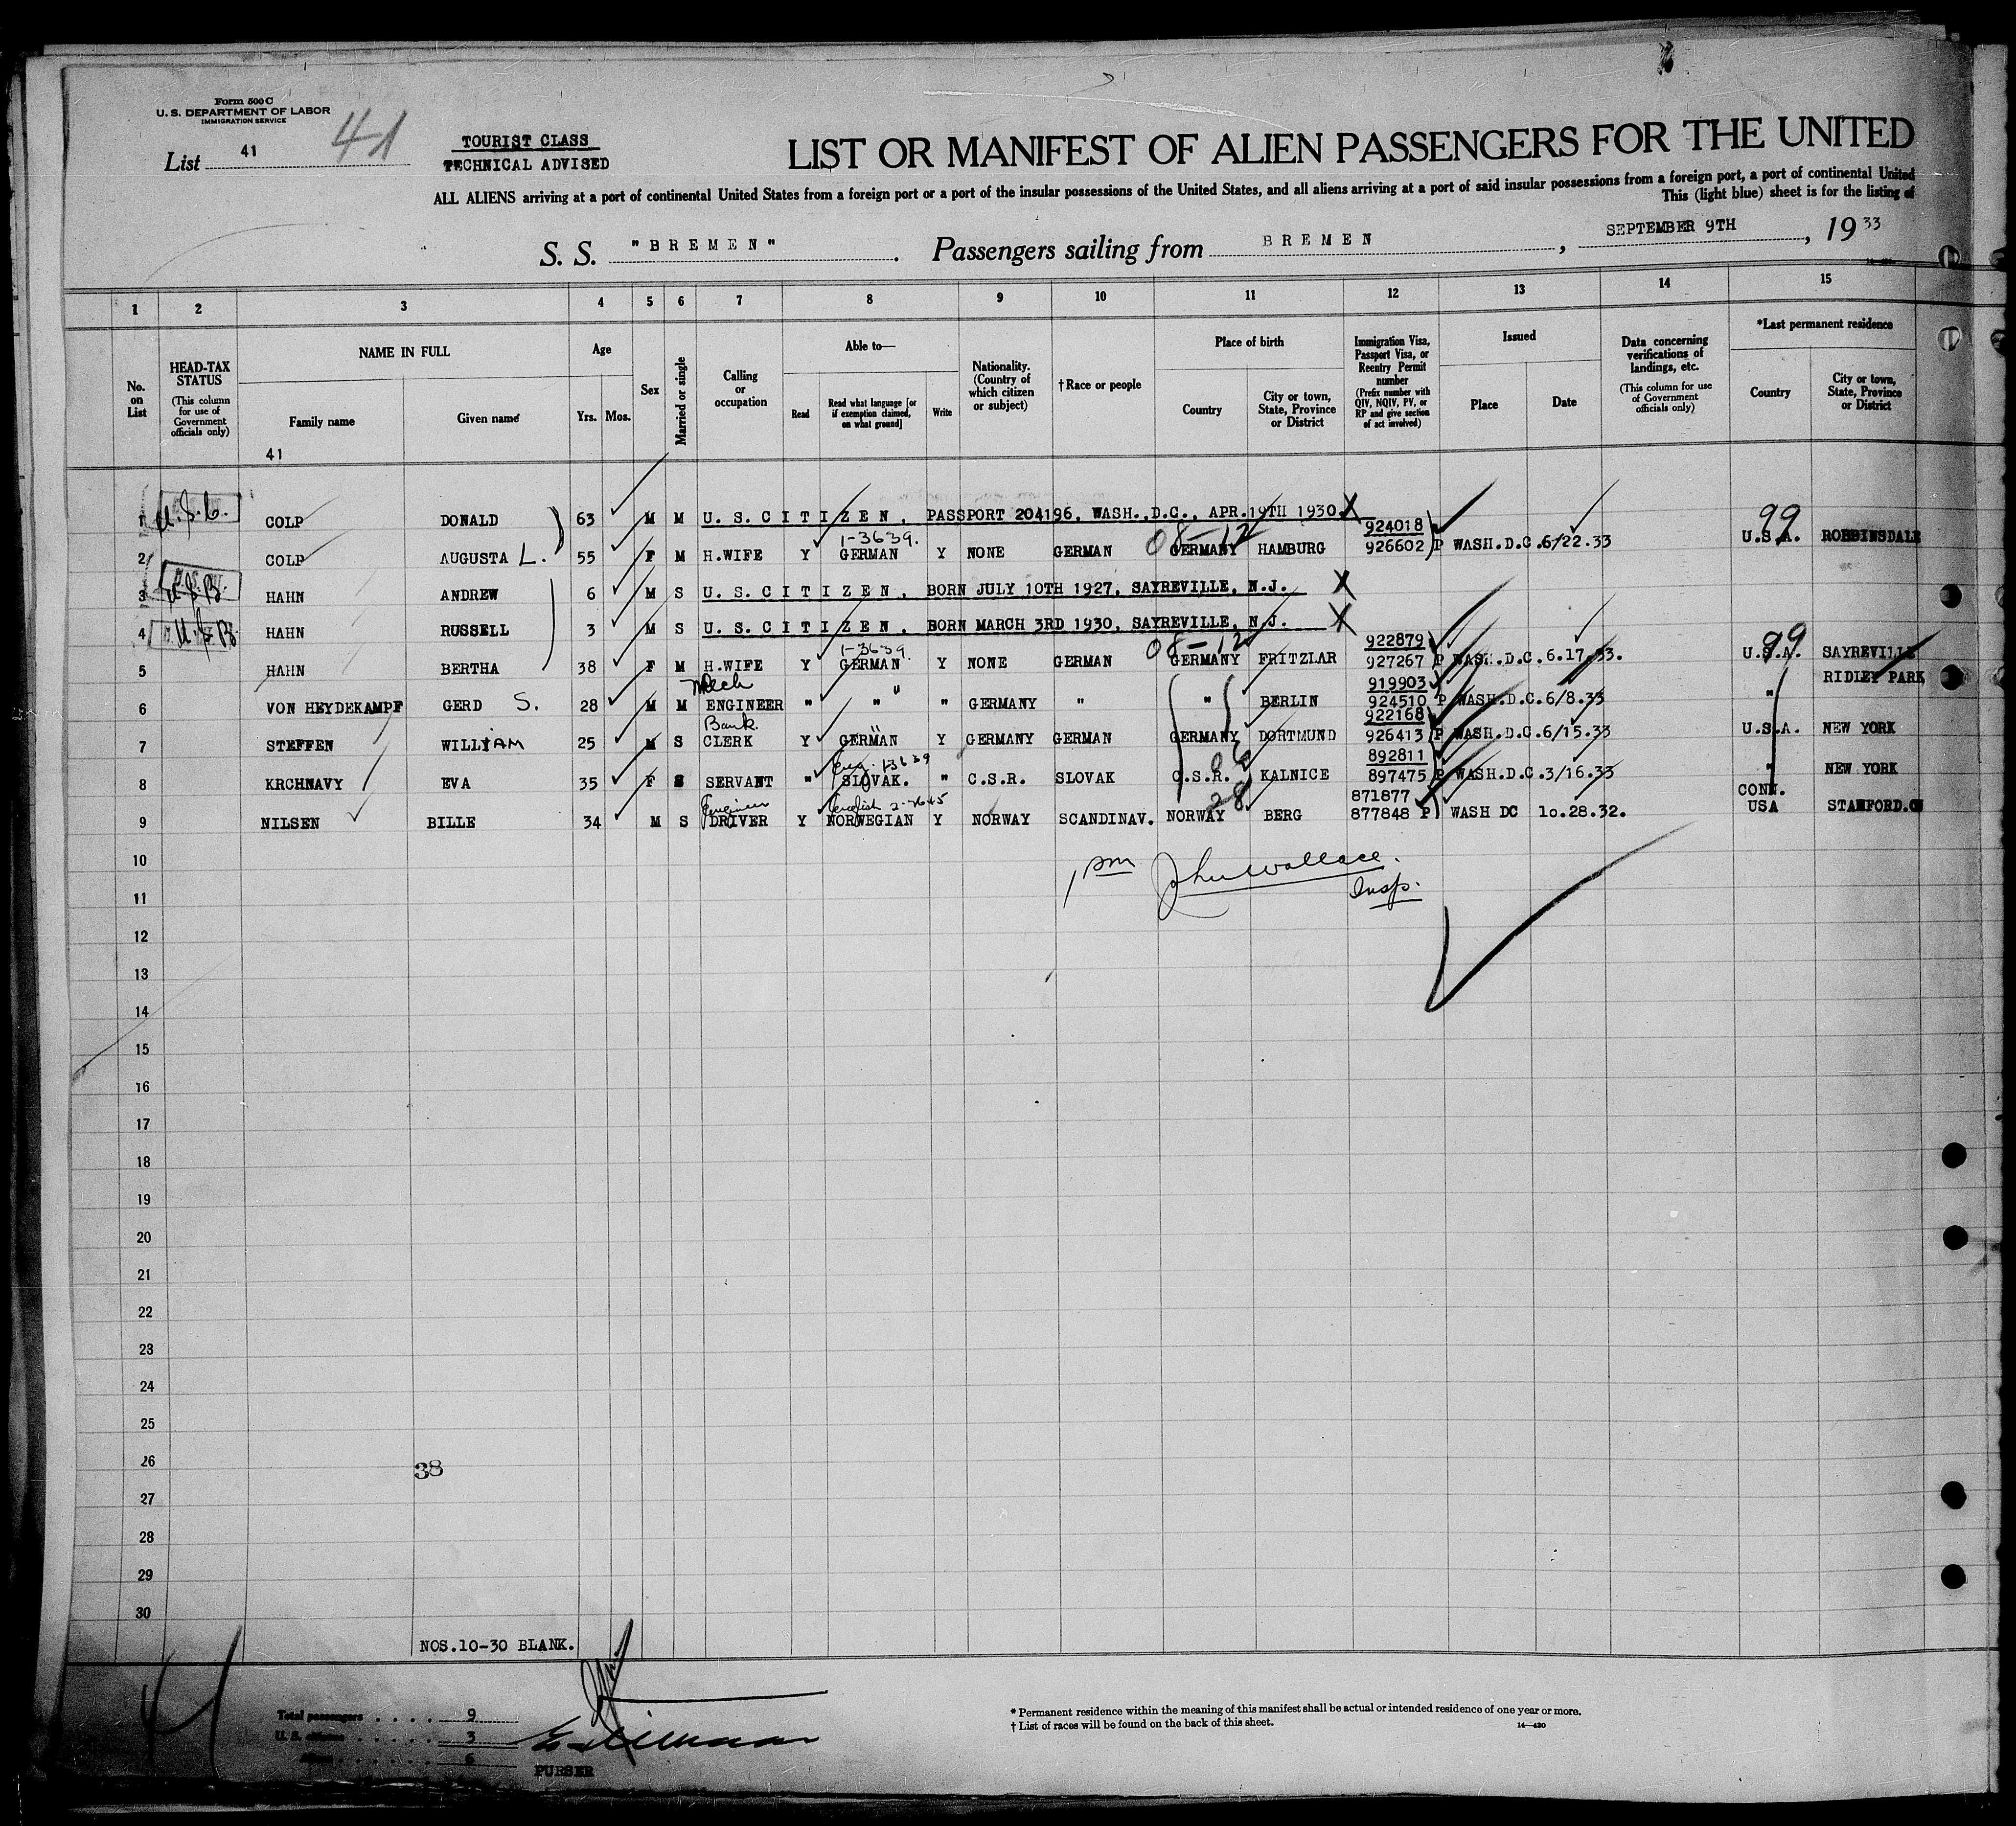 Form 500 C
U. S. DEPARTMENT OF LABOR
IMMIGRATION SERVICE
List 41
41
TOURIST CLASS
TECHNICAL ADVISED
LIST OR MANIFEST OF ALIEN PASSENGERS FOR THE UNITED
ALL ALIENS arriving at a port of continental United States from a foreign port or a port of the insular possessions of the United States, and all aliens arriving at a port of said insular possessions from a foreign port, a port of continental United
This (light blue) sheet is for the listing of
S. S. "BREMEN". Passengers sailing from BREMEN, SEPTEMBER 9TH, 1933
1 2 3 4 5 6 7 8 9 10 11 12 13 14 15
No. on List
HEAD-TAX STATUS (This column for use of Government officials only)
NAME IN FULL
Family name
Given name
41
Age
Yrs. Mos.
Sex
Married or single
Calling or occupation
Able to—
Read
Read what language [or if exemption claimed, on what ground]
Write
Nationality. (Country of which citizen or subject)
†Race or people
Place of birth
Country
City or town, State, Province or District
Immigration Visa, Passport Visa, or Reentry Permit number (Prefix number with QIV, NQIV, PV, or RP and give section of act involved)
Issued
Place
Date
Data concerning verifications of landings, etc. (This column for use of Government officials only)
*Last permanent residence
Country
City or town, State, Province or District
1 U.S.C. COLP DONALD 63 M M U. S. CITIZEN, PASSPORT 204196, WASH.,D.C., APR.19TH 1930 X
1-3639. 08-12 924018 99
2 COLP AUGUSTA L. 55 F M H.WIFE Y GERMAN Y NONE GERMAN GERMANY HAMBURG 926602 P WASH.D.C.6/22.33 U.S.A. ROBBINSDALE
3 U.S.B. HAHN ANDREW 6 M S U. S. CITIZEN, BORN JULY 10TH 1927, SAYREVILLE, N.J. X
4 U.S.B. HAHN RUSSELL 3 M S U. S. CITIZEN, BORN MARCH 3RD 1930, SAYREVILLE, N.J. X
1-3639. 08-12 922879 99
5 HAHN BERTHA 38 F M H.WIFE Y GERMAN Y NONE GERMAN GERMANY FRITZLAR 927267 P WASH.D.C.6.17.33. U.S.A. SAYREVILLE
Mech 919903 RIDLEY PARK
6 VON HEYDEKAMPF GERD S. 28 M M ENGINEER " " " GERMANY " " BERLIN 924510 P WASH.D.C.6/8.33 "
Bank 922168
7 STEFFEN WILLIAM 25 M S CLERK Y GERMAN Y GERMANY GERMAN GERMANY DORTMUND 926413 P WASH.D.C.6/15.33 U.S.A. NEW YORK
892811
8 KRCHNAVY EVA 35 F S SERVANT " SLOVAK. " C.S.R. SLOVAK C.S.R. KALNICE 897475 P WASH.D.C.3/16.33 " NEW YORK
Engineer English 28 871877 CONN.
9 NILSEN BILLE 34 M S DRIVER Y NORWEGIAN Y NORWAY SCANDINAV. NORWAY BERG 877848 P WASH DC 10.28.32. USA
10
pm John Wallace.
Insp.
11
12
13
14
15
16
17
18
19
20
21
22
23
24
25
26
38
27
28
29
30
NOS.10-30 BLANK.
Total passengers . . . . 9
U. S. citizens . . . . . 3
Aliens . . . . . . 6
PURSER
* Permanent residence within the meaning of this manifest shall be actual or intended residence of one year or more.
† List of races will be found on the back of this sheet.
14—430